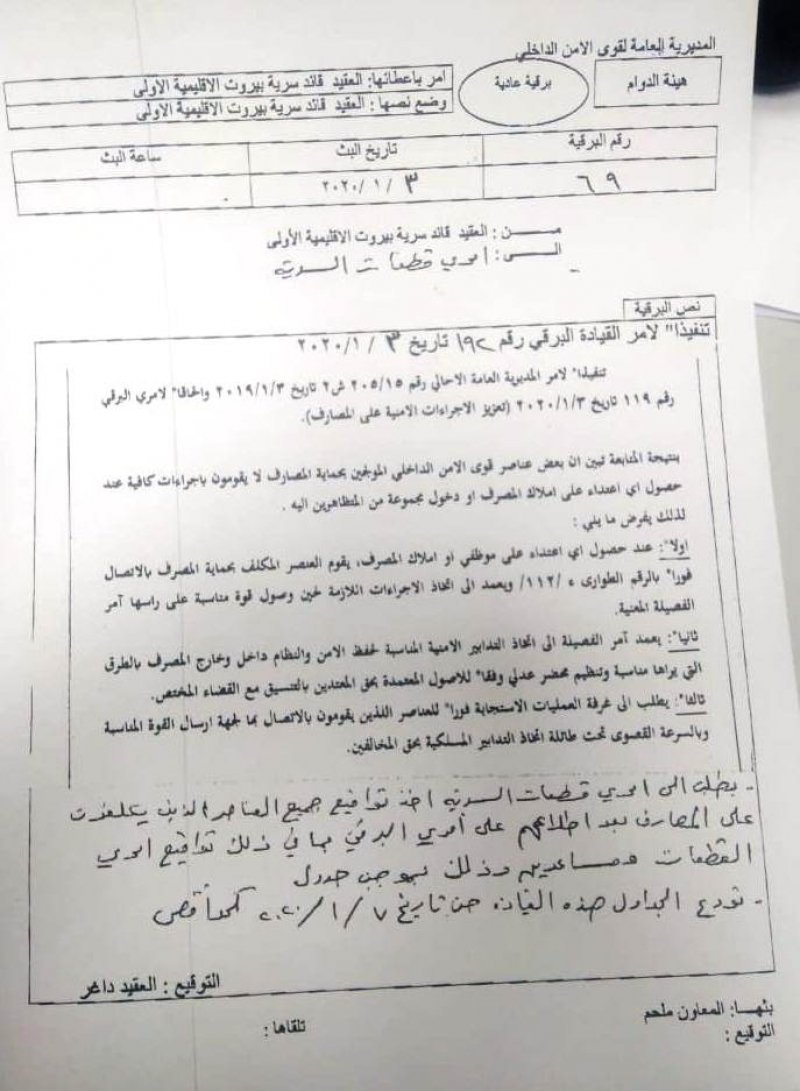 المديرية العامة لقوى الامن الداخلي
هيئة الدوام
برقية عادية
امر باعطائها: العقيد قائد سرية بيروت الاقليمية الأولى
وضع نصها : العقيد قائد سرية بيروت الاقليمية الأولى
رقم البرقية تاريخ البث ساعة البث
٦٩ ٣ /١ /٢٠٢٠
مــــن : العقيد قائد سرية بيروت الاقليمية الأولى
الـــى : امري قطعات السرية
نص البرقية
تنفيذا" لامر القيادة البرقي رقم ١٩٢ تاريخ ٣ /٢٠٢٠/١
تنفيذا" لامر المديرية العامة الاحالي رقم ٢٠٥/١٥ ش٢ تاريخ ٢٠١٩/١/٣ والحاقا" لامري البرقي
رقم ١١٩ تاريخ ٢٠٢٠/١/٣ (تعزيز الاجراءات الامنية على المصارف).
بنتيجة المتابعة تبين ان بعض عناصر قوى الامن الداخلي المولجين بحماية المصارف لا يقومون باجراءات كافية عند
حصول اي اعتداء على املاك المصرف او دخول مجموعة من المتظاهرين اليه .
لذلك يفرض ما يلي :
اولا": عند حصول اي اعتداء على موظفي او املاك المصرف، يقوم العنصر المكلف بحماية المصرف بالاتصال
فورا" بالرقم الطوارى ء /١١٢/ ويعمد الى اتخاذ الاجراءات اللازمة لحين وصول قوة مناسبة على راسها آمر
الفصيلة المعنية.
ثانيا": يعمد آمر الفصيلة الى اتخاذ التدابير الامنية المناسبة لحفظ الامن والنظام داخل وخارج المصرف بالطرق
التي يراها مناسبة وتنظيم محضر عدلي وفقا" للاصول المعتمدة بحق المعتدين بالتنسيق مع القضاء المختص.
ثالثا": يطلب الى غرفة العمليات الاستجابة فورا" للعناصر اللذين يقومون بالاتصال بما لجهة ارسال القوة المناسبة
وبالسرعة القصوى تحت طائلة اتخاذ التدابير المسلكية بحق المخالفين.
- يطلب الى امري قطعات السرية اخذ تواقيع جميع العناصر الذين يكلفون
على المصارف بعد اطلاعهم على أمري البرقي بما في ذلك تواقيع امري
القطعات ومساعديهم وذلك بموجب جدول
- تودع الجداول هذه القيادة من تاريخ ٢٠٢٠/١/٧ كحد أقصى
التوقيع : العقيد داغر
بثهـــا: المعاون ملحم
تلقاها :
التوقيع :